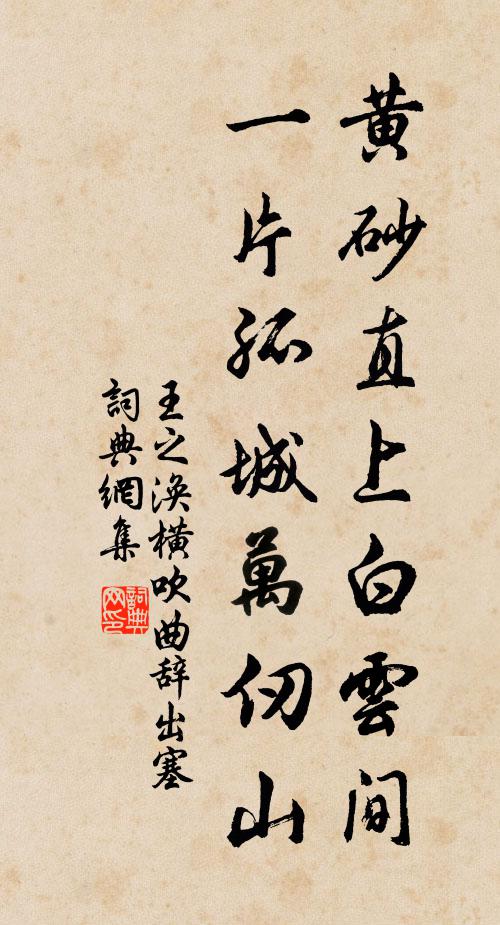 黄砂直上白雲间
一片孤城萬仞山
王之涣横吹曲辞出塞
詞典網集
詞典网印